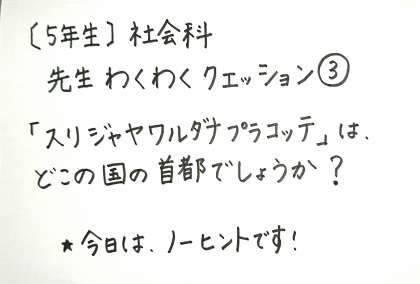 〔5年生〕社会科
先生わくわくクエッション③
「スリジャヤワルダナプラコッテ」は、
どこの国の首都でしょうか？
★今日は、ノーヒントです！